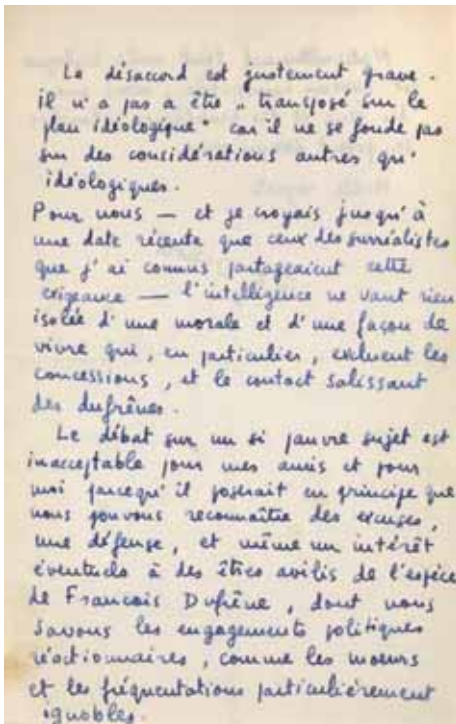 Le désaccord est justement grave.
il n'a pas a être „transposé sur le
plan idéologique" car il ne se fonde pas
sur des considérations autres qu'
idéologiques.
Pour nous — et je croyais jusqu'à
une date récente que ceux des surréalistes
que j'ai connus partageaient cette
exigeance — l'intelligence ne vaut rien
isolée d'une morale et d'une façon de
vivre qui, en particulier, excluent les
concessions, et le contact salissant
des dufrênes.
Le débat sur un si pauvre sujet est
inacceptable pour mes amis et pour
moi parcequ'il poserait en principe que
nous pouvons reconnaître des excuses,
une défense, et même un intérêt
éventuels à des êtres avilis de l'espèce
de Francois Dufrêne, dont nous
savons les engagements politiques
réactionnaires, comme les moeurs
et les fréquentations particulièrement
ignobles.